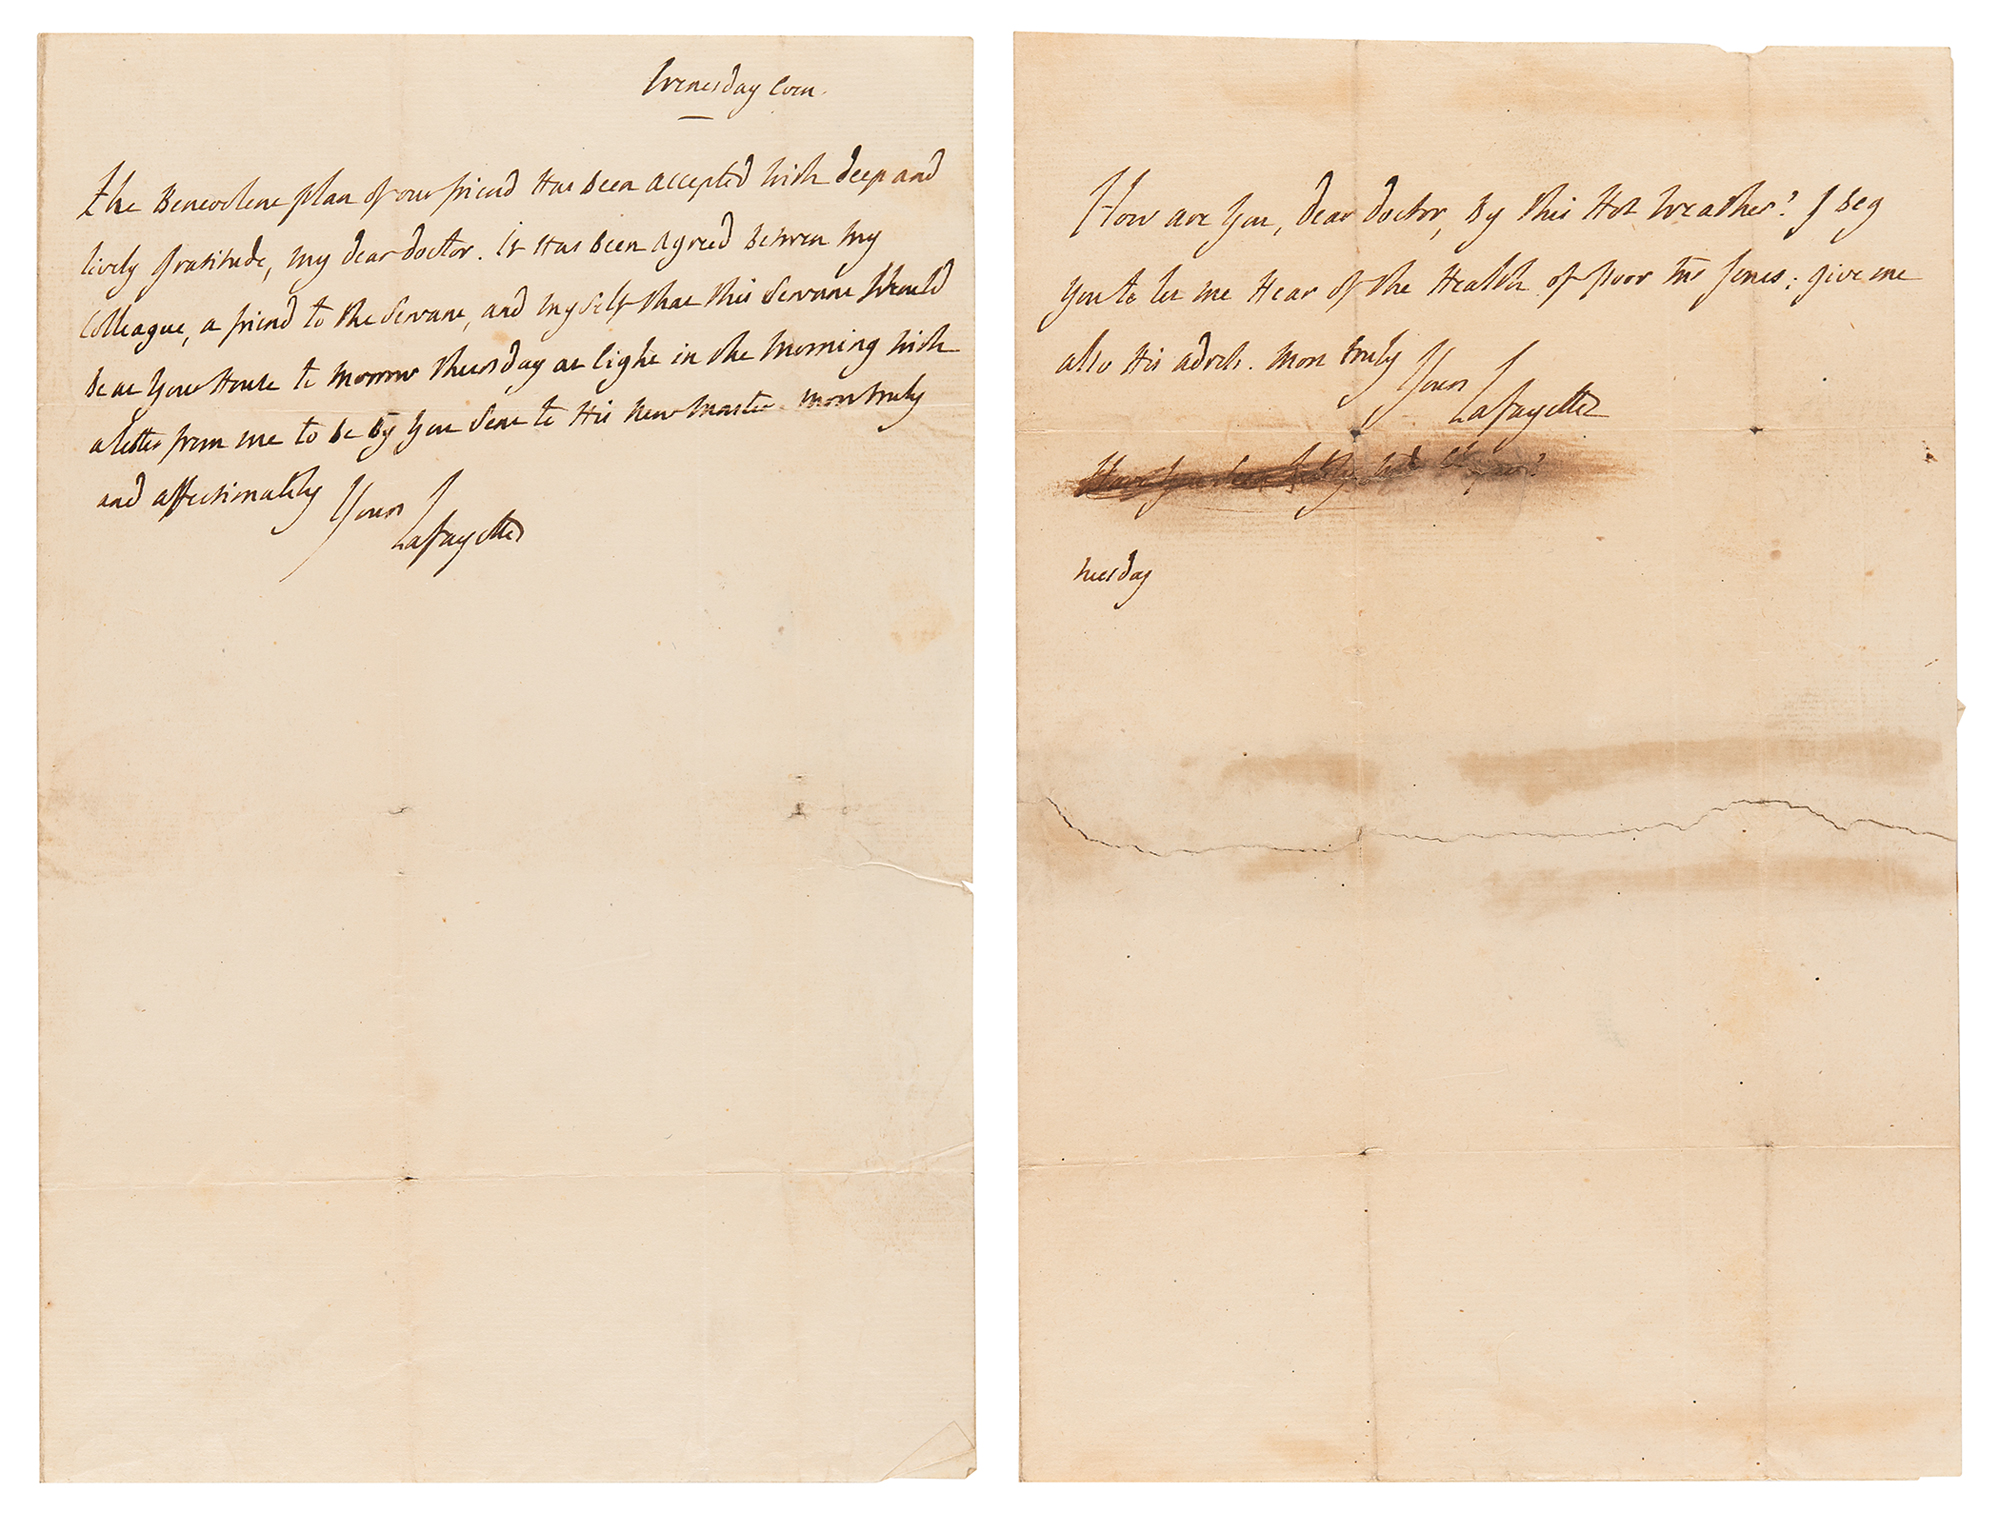 Wenesday Even.
the Benevolent plan of our friend Has been accepted With deep and
lively Gratitude, My dear doctor. It Has been Agreed Between My
Colleague, a friend to the Servant, and Myself that this Servant Should
be at Your House to Morrow thursday at Eight in the Morning With
a letter from me to be By You Sent to His New Master. Most truly
and affectionately
Yours
Lafayette
How are You, dear doctor, By this Hot Weather? I Beg
You to let me Hear of the Health of poor Mr Jones; give me
also His adress. Most truly
Yours
Lafayette
Have You
tuesday